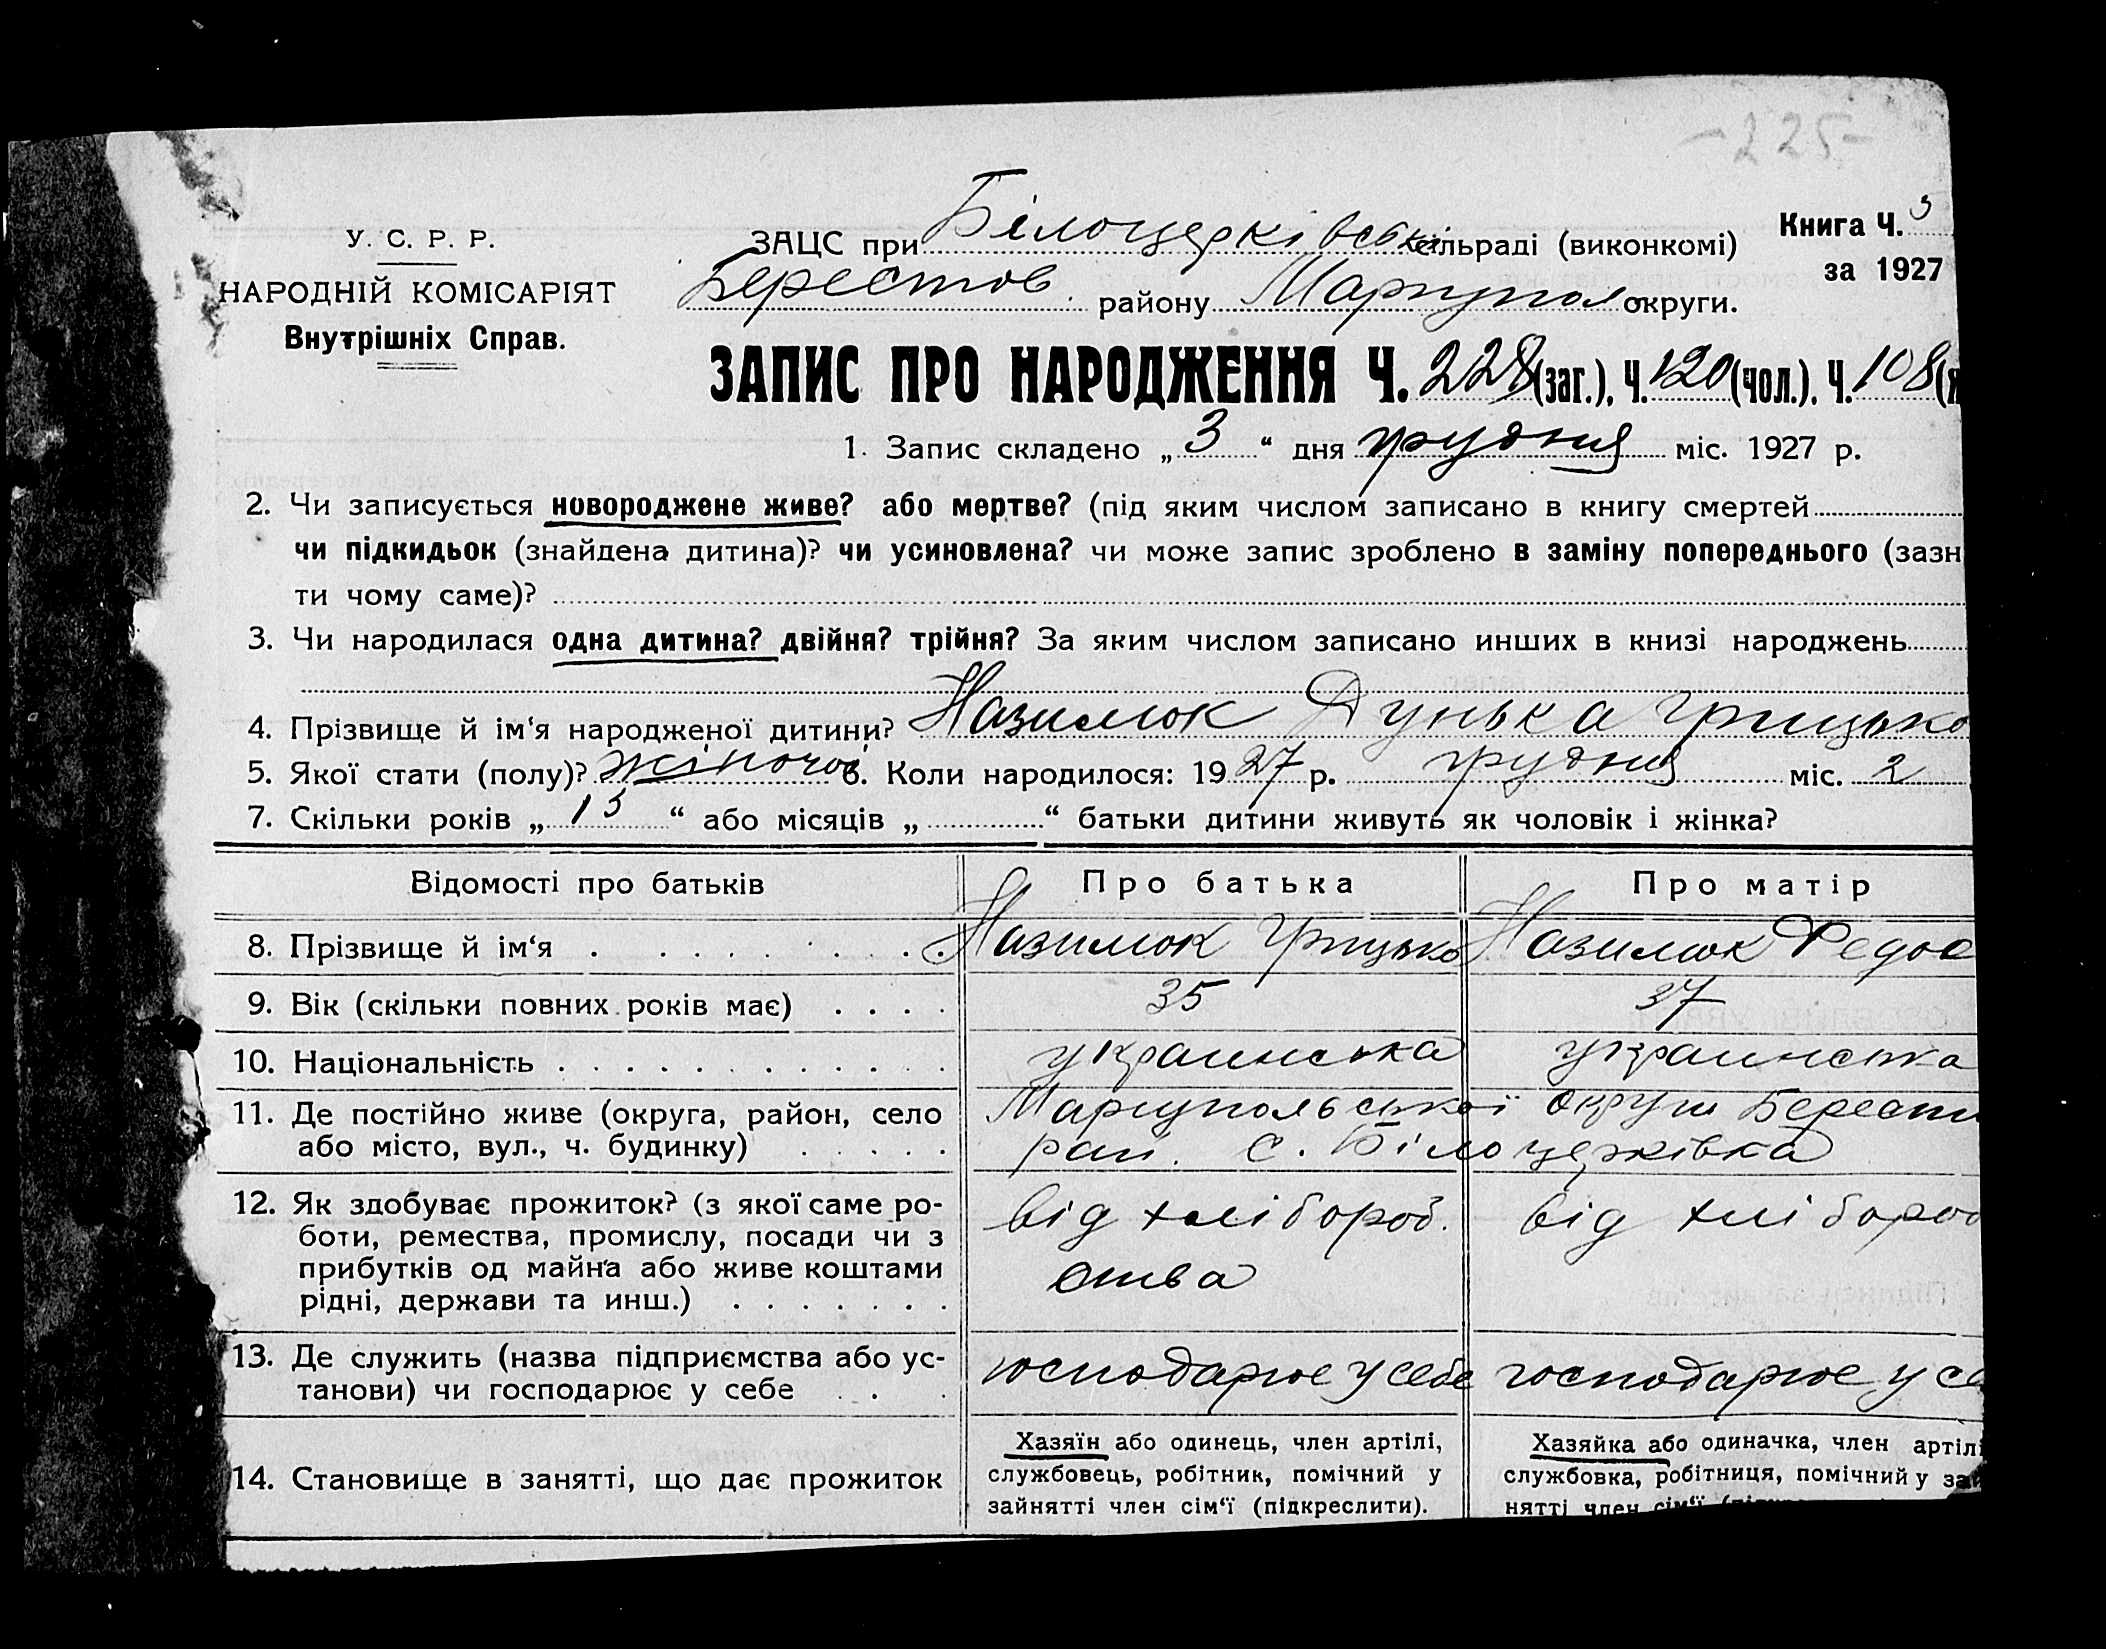 -225-
У. С. Р. Р.
НАРОДНІЙ КОМІСАРІЯТ
Внутрішніх Справ.
ЗАЦС при Білоцерківській сільраді (виконкомі)
Книга Ч. 3
за 1927
Берестов. району Маріупол округи.
ЗАПИС ПРО НАРОДЖЕННЯ Ч. 228 (заг.), Ч. 120 (чол.), Ч. 108 (ж
1. Запис складено „ 3 “ дня грудня міс. 1927 р.
2. Чи записується новороджене живе? або мертве? (під яким числом записано в книгу смертей
чи підкидьок (знайдена дитина)? чи усиновлена? чи може запис зроблено в заміну попереднього (зазн
ти чому саме)?
3. Чи народилася одна дитина? двійня? трійня? За яким числом записано инших в книзі народжень
4. Прізвище й ім‘я народженої дитини? Назимок Дунька Грицько
5. Якої стати (полу)? жіночої 6. Коли народилося: 1927 р. грудня міс. 2
7. Скільки років „ 15 “ або місяців „ “ батьки дитини живуть як чоловік і жінка?
Відомості про батьків Про батька Про матір
8. Прізвище й ім‘я Назимок Грицько Назимок Федос
9. Вік (скільки повних років має) 35 37
10. Національність украинська украинська
11. Де постійно живе (округа, район, село Маріупольської округи Берести
або місто, вул., ч. будинку) рай. с. Білоцерківка
12. Як здобуває прожиток? (з якої саме ро- від хлібороб. від хлібороб
боти, ремества, промислу, посади чи з ства
прибутків од майна або живе коштами
рідні, держави та инш.)
13. Де служить (назва підприємства або ус- господарює у себе господарює у се
танови) чи господарює у себе
Хазяїн або одинець, член артілі, Хазяйка або одиначка, член артілі
14. Становище в занятті, що дає прожиток службовець, робітник, помічний у службовка, робітниця, помічний у зай
зайнятті член сім‘ї (підкреслити). нятті член сім‘ї